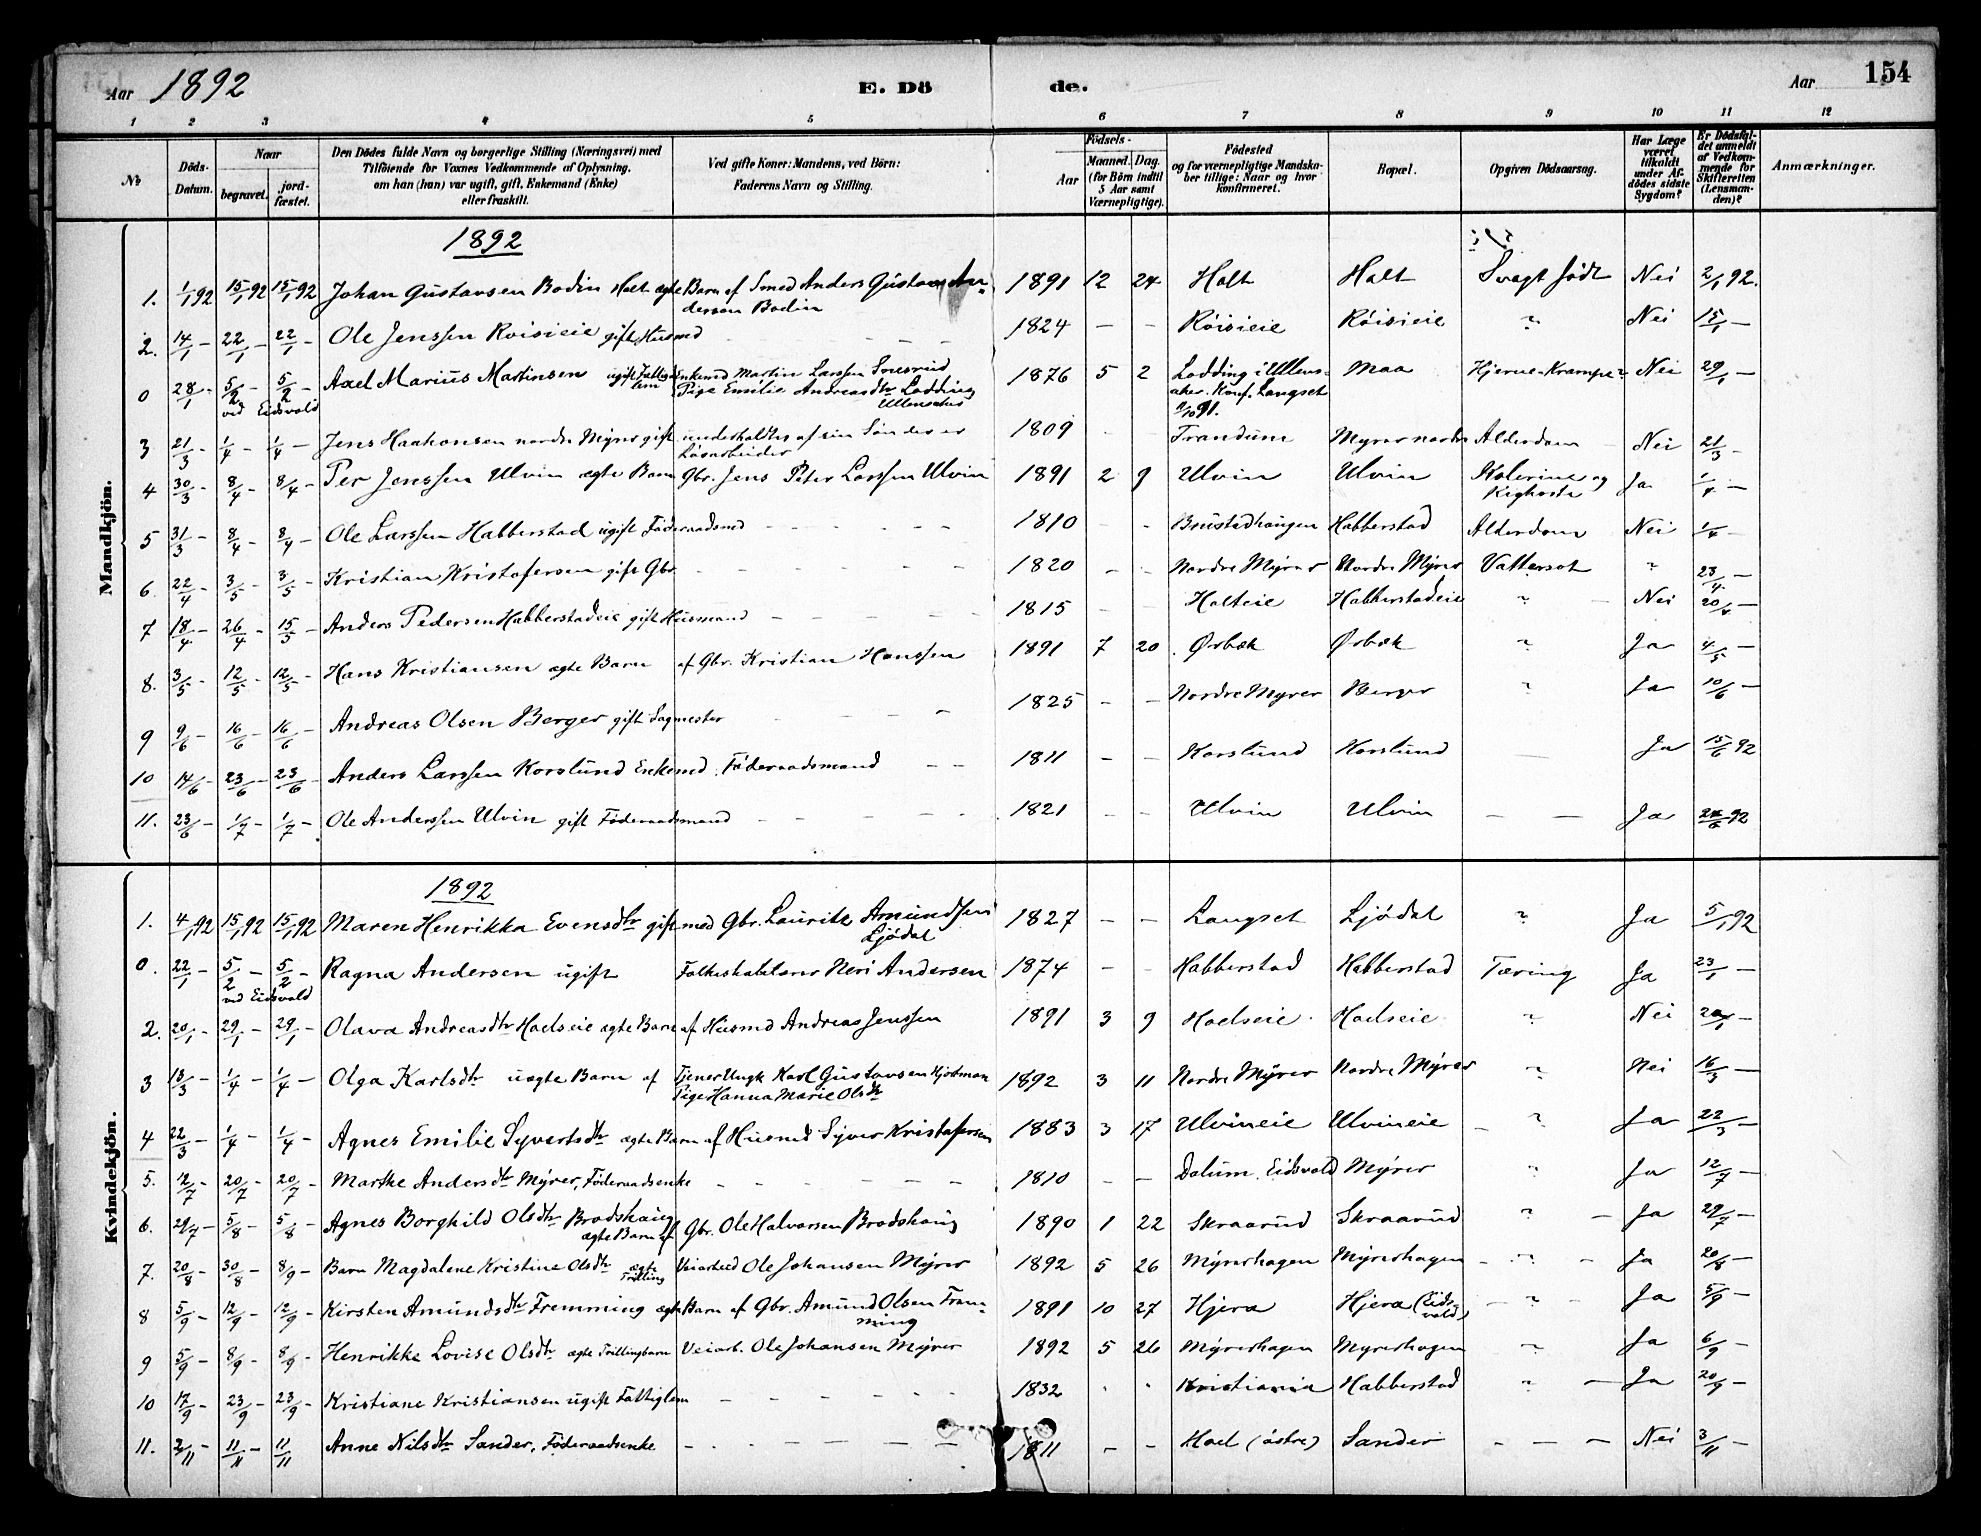 Aar 1892 E. Dö de. Aar 154
1 2 3 4 5 6 7 8 9 10 11 12
No Döds-Datum. Naar begravet. jord-fæstet. Den Dödes fulde Navn og borgerlige Stilling (Næringsvei) med Tilföiende for Voxnes Vedkommende af Oplysning, om han (hun) var ugift, gift, Enkemand (Enke) eller fraskilt. Ved gifte Koner: Mandens, ved Börn: Faderens Navn og Stilling. Födsels- Aar Maaned. Dag. (for Börn indtil 5 Aar samt Værnepligtige). Födested og for værnepligtige Mandska-ber tillige: Naar og hvor konfirmeret. Bopæl. Opgiven Dödsaarsag. Har Læge været tilkaldt under Af-dödes sidste Sygdom? Er Dödsfal-det anmeldt af Vedkom-mende for Skifteretten (Lensman-den)? Anmærkninger.
Mandkjön.
1892
1. 1/1 92 15/1 92 15/1 92 Johan Gustavsen Bodin Holt ægte Barn af Smed Anders Gustav An- 1891 12 24 Holt Holt Svagt født Nei 2/1 92.
dersen Bodin
2. 14/1 – 22/1 – 22/1 – Ole Jenssen Röisieie gift Husmd – – – 1824 – – Röisieie Röisieie " Nei 15/1 –
0 28/1 – 5/2 – 5/2 – Axel Marius Martinsen ugift Fattig- Enkemd Martin Larssen 1876 5 2 Lodding i Ullens- Maa Hjerne-Krampe Nei 29/1 –
lem Pige Emilie Andreasdtr Lodding aker. Konf. Langset
ved Eidsvold Ullensaker 91.
3 21/3 – 1/4 – 1/4 – Jens Haakonsen nordre Myrer gift underholdtes af sin Søn der er 1809 Trandum Myrer nordre Alderdom Nei 21/3 –
Løsarbeider
4 30/3 – 8/4 – 8/4 – Per Jenssen Ulvin ægte Barn Gbr. Jens Peter Larssen Ulvin 1891 2 9 Ulvin Ulvin Kolerine og Ja 1/4 –
Kighoste
5 31/3 – 8/4 – 8/4 – Ole Larssen Habberstad ugift Föderaadsmd – – – 1810 – Habberstad Alderdom Nei 1/4 –
6. 22/4 – 3/5 – 3/5 – Kristian Kristofersen gift Gbr. – – – 1820 – – Nordre Myrer Nordre Myrer Vattersot " 23/4 –
7 18/4 – 26/4 – 15/5 – Anders Pedersen Habberstadeie gift Husmand – – – 1815 – – Holteie Habberstadeie " – Nei 20/4 –
8. 3/5 – 12/5 – 12/5 – Hans Kristiansen ægte Barn af Gbr. Kristian Hanssen 1891 7 20. Ørbæk Ørbæk " Ja 4/5 –
9 9/6 – 16/6 – 16/6 – Andreas Olsen Berger gift Sagmester – – – 1825 – – Nordre Myrer Berger " Ja 10/6 –
10 14/6 – 23/6 – 23/6 – Anders Larssen Korslund Enkemd. Föderaadsmand – – 1811 – – Korslund Korslund — Ja 15/6 92
11. 23/6 – 1/7 – 1/7 – Ole Anderssen Ulvin gift Föderaadsmand – – – 1821 – – Ulvin Ulvin – – Ja 24/6 92
Kvindekjön.
1892
1. 4/1 92 15/1 92 15/1 92 Maren Henrikka Evensdtr gift med Gbr. Lauritz Amundsen 1827 – – Langset Ljødal " Ja 5/1 92
Ljødal
0. 22/1 – 5/2 – 5/2 – Ragna Andersen ugift Folkeskolelærer Neri Andersen 1874 – – Habberstad Habberstad Tæring Ja 23/1 –
ved Eidsvold
2. 20/1 – 29/1 – 29/1 – Olava Andreasdtr Hoelseie ægte Barn af Husmd Andreas Jenssen 1891 3 9 Hoelseie Hoelseie " Nei 20/1 –
3 13/3 – 1/4 – 1/4 – Olga Karlsdtr uægte Barn af Tjener Ungk Karl Gustavsen 1892 3 11 Nordre Myrer Nordre Myrer " Nei 16/3 –
Pige Hanna Marie Olsdtr
4 22/3 – 1/4 – 1/4 – Agnes Emilie Syvertsdtr ægte Barn af Husmd Syver Kristofersen 1883 3 17 Ulvineie Ulvineie – " Ja 22/3 –
5. 12/7 – 20/7 – 20/7 – Marthe Andersdtr Myrer, Föderaadsenke – – – 1810 – – Dalum. Eidsvold Myrer " Ja 12/7 –
6. 29/7 – 5/8 – 5/8 – Agnes Borghild Olsdtr Brodshaug Gbr. Ole Halvorsen Brodshaug 1890 1 22 Skraarud Skraarud " – Ja 29/7 –
ægte Barn af
7. 20/8 – 30/8 – 8/9 – Barn Magdalene Kristine Olsdtr ægte Veiarbeid Ole Johansen Myrer 1892 5 26 Myrerhagen Myrerhagen – " – Ja 20/8 –
Trilling
8 5/9 – 12/9 – 12/9 – Kirsten Amundsdtr Fremming ægte Barn af Gbr. Amund Olsen Frem- 1891 10 27 Hjera Hjera (Eids- – " – Ja 5/9 –
ming vold)
9 5/9 – 8/9 – 8/9 – Henrikke Lovise Olsdtr ægte Trillingbarn Veiarb. Ole Johansen Myrer 1892 5 26 Myrerhagen Myrerhagen " Ja 6/9 –
10 17/9 – 23/9 – 23/9 – Kristiane Kristiansen ugift Fattiglem – – – 1832 Kristiania Habberstad " – Ja 20/9 –
11. 2/11 – 11/11 – 11/11 Anne Nilsdtr Sander, Föderaadsenke – – – 1811 – – Hoel (østre) Sander – – – Nei 3/11 –